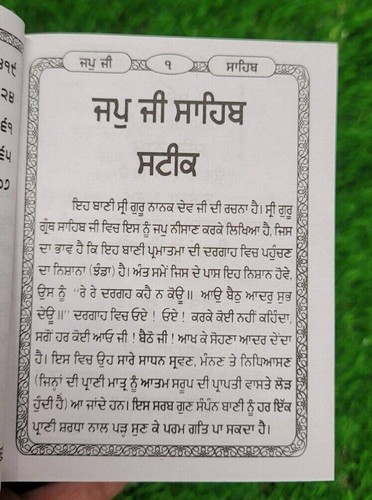 ੪੧੯
੨੪
੬੧
੬੫
੦੭
ਜਪੁ ਜੀ ੧ ਸਾਹਿਬ
ਜਪੁ ਜੀ ਸਾਹਿਬ
ਸਟੀਕ
ਇਹ ਬਾਣੀ ਸ੍ਰੀ ਗੁਰੂ ਨਾਨਕ ਦੇਵ ਜੀ ਦੀ ਰਚਨਾ ਹੈ। ਸ੍ਰੀ ਗੁਰੂ
ਗ੍ਰੰਥ ਸਾਹਿਬ ਜੀ ਵਿਚ ਇਸ ਨੂੰ ਜਪੁ ਨੀਸਾਣ ਕਰਕੇ ਲਿਖਿਆ ਹੈ, ਜਿਸ
ਦਾ ਭਾਵ ਹੈ ਕਿ ਇਹ ਬਾਣੀ ਪ੍ਰਮਾਤਮਾ ਦੀ ਦਰਗਾਹ ਵਿਚ ਪਹੁੰਚਣ
ਦਾ ਨਿਸ਼ਾਨਾ (ਝੰਡਾ) ਹੈ। ਅੰਤ ਸਮੇਂ ਜਿਸ ਦੇ ਪਾਸ ਇਹ ਨਿਸ਼ਾਨ ਹੋਵੇ,
ਉਸ ਨੂੰ "ਰੇ ਰੇ ਦਰਗਹ ਕਹੈ ਨ ਕੋਊ॥ ਆਉ ਬੈਠੁ ਆਦਰੁ ਸੁਭ
ਦੇਊ॥" ਦਰਗਾਹ ਵਿਚ ਓਏ! ਓਏ! ਕਰਕੇ ਕੋਈ ਨਹੀਂ ਕਹਿੰਦਾ,
ਸਗੋਂ ਹਰ ਕੋਈ ਆਓ ਜੀ! ਬੈਠੋ ਜੀ! ਆਖ ਕੇ ਸੋਹਣਾ ਆਦਰ ਦੇਂਦਾ
ਹੈ। ਇਸ ਵਿਚ ਉਹ ਸਾਰੇ ਸਾਧਨ ਸ੍ਰਵਣ, ਮੰਨਣ ਤੇ ਨਿਧਿਆਸਣ
(ਜਿਨ੍ਹਾਂ ਦੀ ਪ੍ਰਾਣੀ ਮਾਤ੍ਰ ਨੂੰ ਆਤਮ ਸਰੂਪ ਦੀ ਪ੍ਰਾਪਤੀ ਵਾਸਤੇ ਲੋੜ
ਹੁੰਦੀ ਹੈ) ਆ ਜਾਂਦੇ ਹਨ। ਇਸ ਸਰਬ ਗੁਣ ਸੰਪੰਨ ਬਾਣੀ ਨੂੰ ਹਰ ਇੱਕ
ਪ੍ਰਾਣੀ ਸ਼ਰਧਾ ਨਾਲ ਪੜ੍ਹ ਸੁਣ ਕੇ ਪਰਮ ਗਤਿ ਪਾ ਸਕਦਾ ਹੈ।